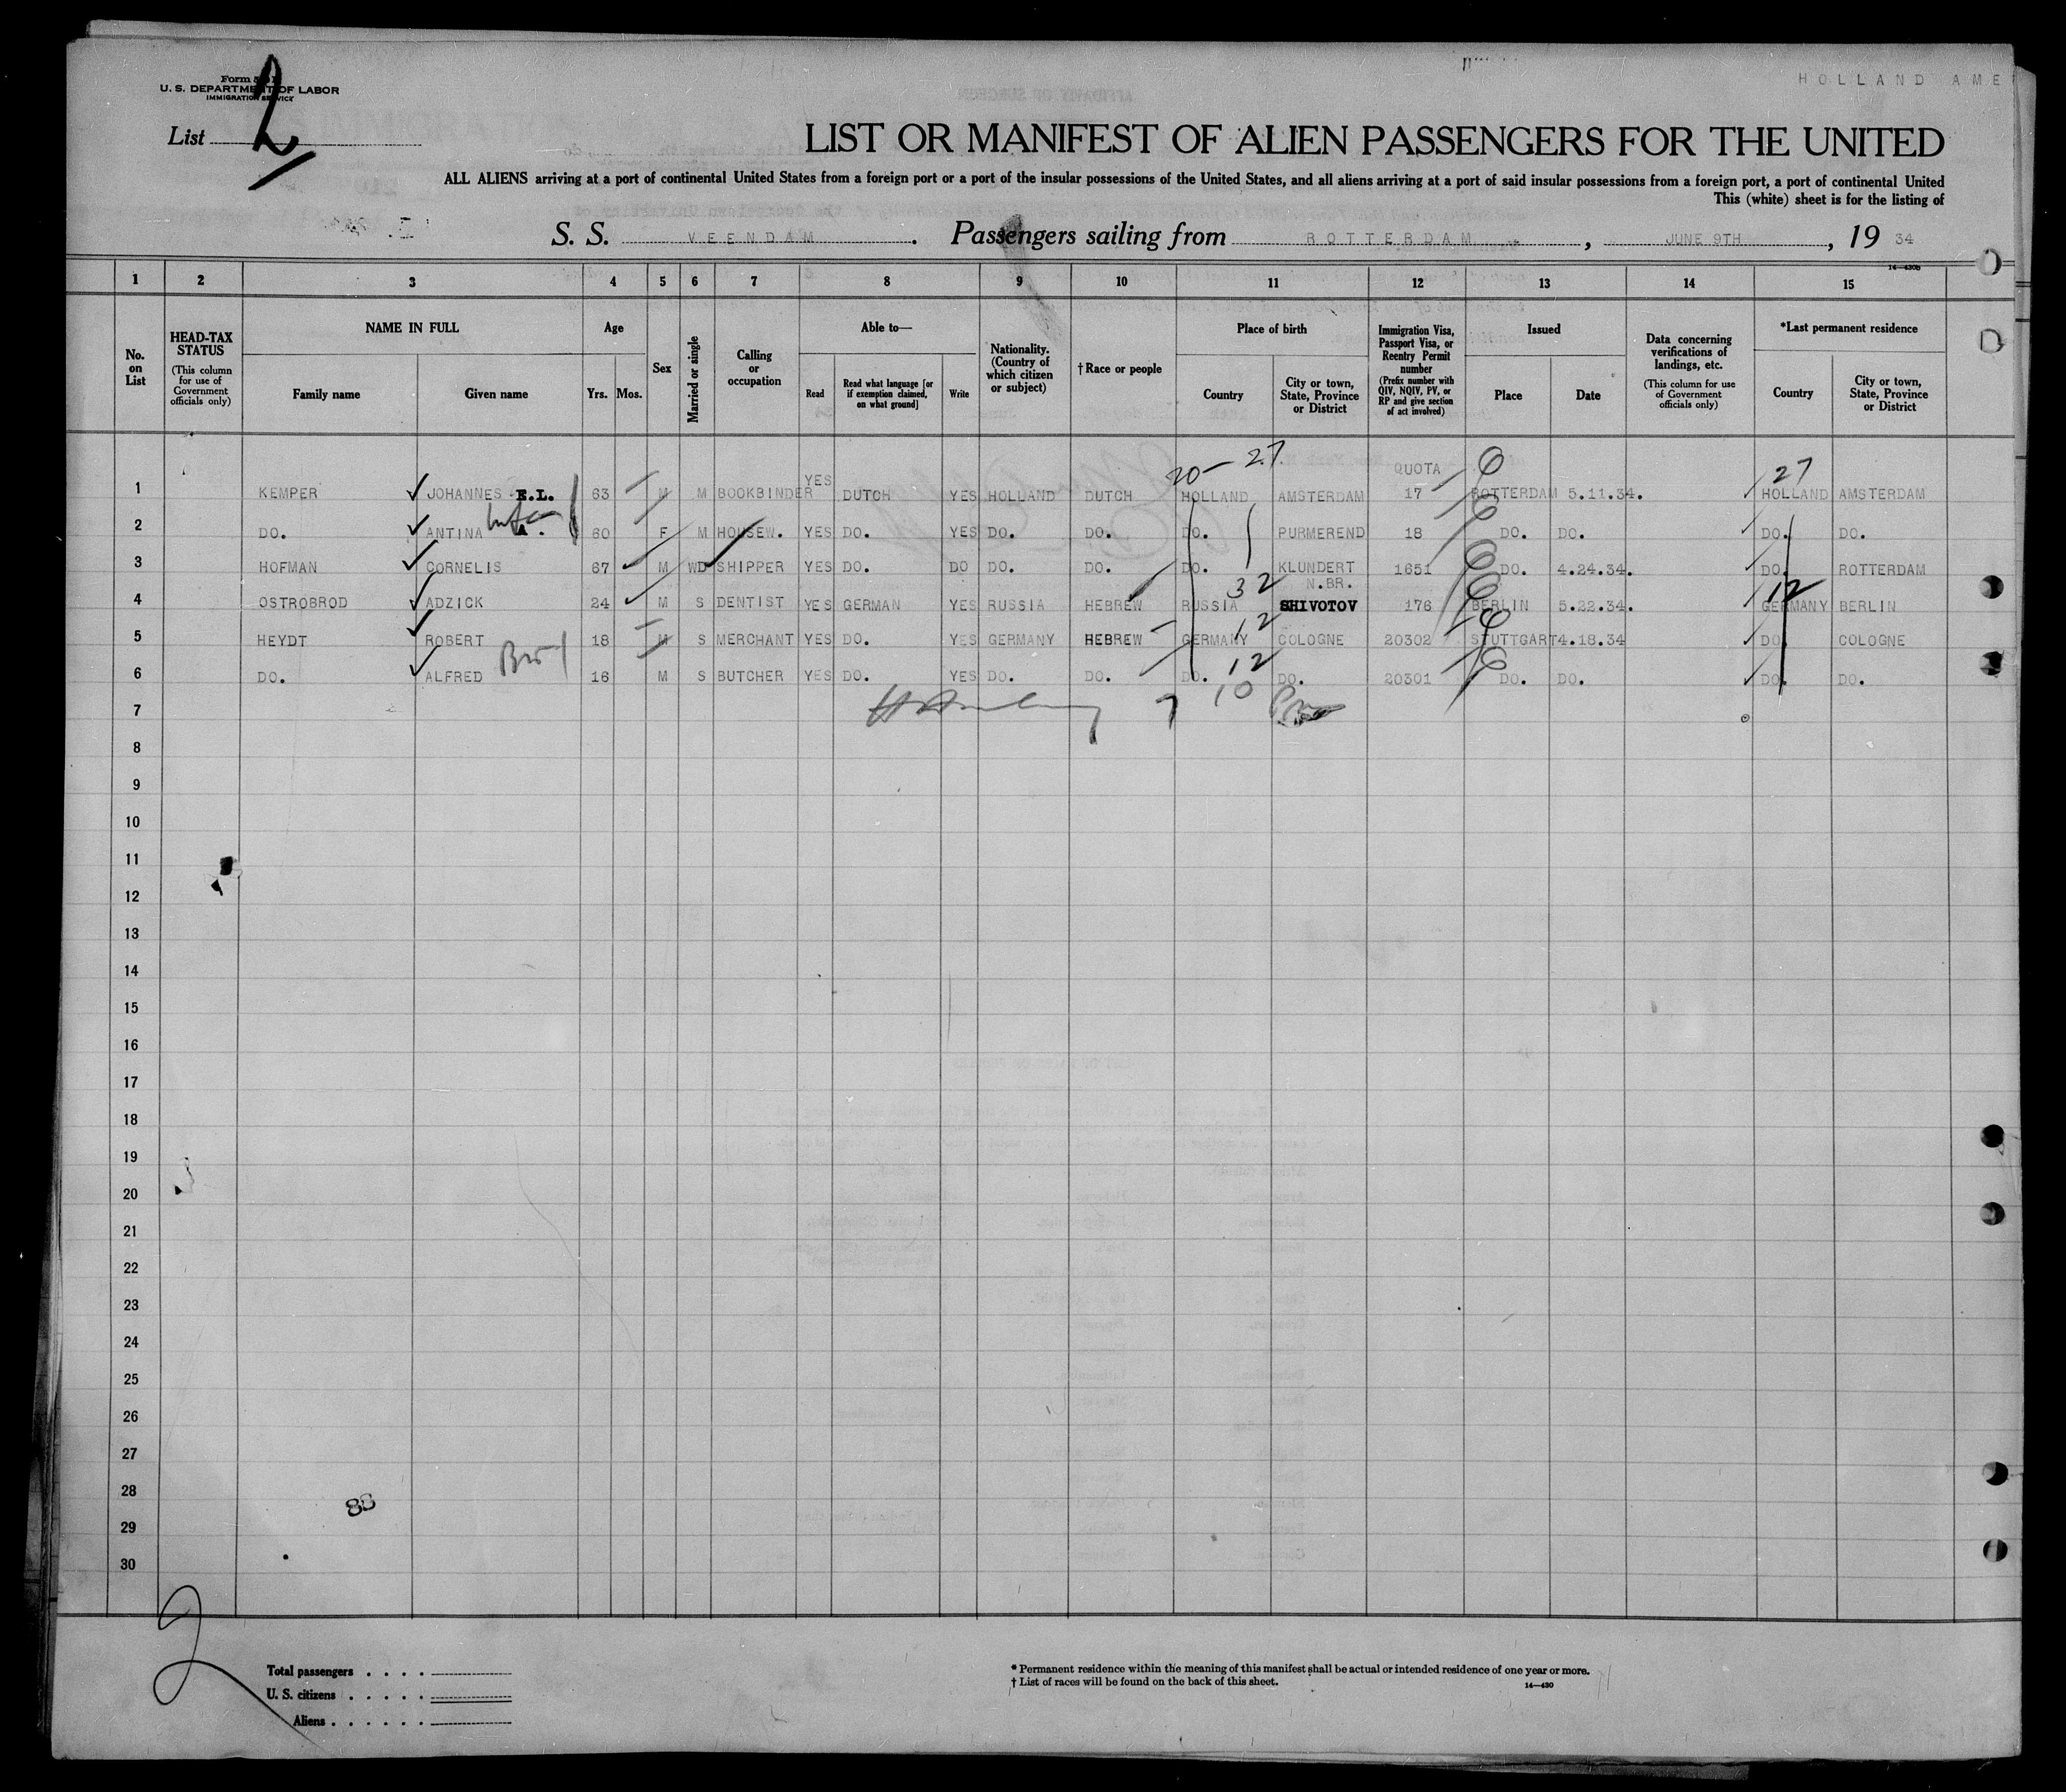 HOLLAND AME
Form
U. S. DEPARTMENT OF LABOR
IMMIGRATION SERVICE
List 2
LIST OR MANIFEST OF ALIEN PASSENGERS FOR THE UNITED
ALL ALIENS arriving at a port of continental United States from a foreign port or a port of the insular possessions of the United States, and all aliens arriving at a port of said insular possessions from a foreign port, a port of continental United
This (white) sheet is for the listing of
S. S. VEENDAM. Passengers sailing from ROTTERDAM, JUNE 9TH, 19 34
14—430b
1 2 3 4 5 6 7 8 9 10 11 12 13 14 15
No. on List
HEAD-TAX STATUS (This column for use of Government officials only)
NAME IN FULL
Family name Given name
Age
Yrs. Mos.
Sex
Married or single
Calling or occupation
Able to—
Read Read what language [or if exemption claimed, on what ground] Write
Nationality. (Country of which citizen or subject)
†Race or people
Place of birth
Country City or town, State, Province or District
Immigration Visa, Passport Visa, or Reentry Permit number (Prefix number with QIV, NQIV, PV, or RP and give section of act involved)
Issued
Place Date
Data concerning verifications of landings, etc. (This column for use of Government officials only)
*Last permanent residence
Country City or town, State, Province or District
20 – 27 QUOTA 27
1 KEMPER JOHANNES E.L. 63 M M BOOKBINDER YES DUTCH YES HOLLAND DUTCH HOLLAND AMSTERDAM 17 ROTTERDAM 5.11.34. HOLLAND AMSTERDAM
2 DO. ANTINA A. 60 F M HOUSEW. YES DO. YES DO. DO. DO. PURMEREND 18 DO. DO. DO. DO.
3 HOFMAN CORNELIS 67 M WD SHIPPER YES DO. DO DO. DO. DO. KLUNDERT 1651 DO. 4.24.34. DO. ROTTERDAM
32 N.BR. 12
4 OSTROBROD ADZICK 24 M S DENTIST YES GERMAN YES RUSSIA HEBREW RUSSIA SHIVOTOV 176 BERLIN 5.22.34. GERMANY BERLIN
12
5 HEYDT ROBERT 18 M S MERCHANT YES DO. YES GERMANY HEBREW GERMANY COLOGNE 20302 STUTTGART 4.18.34 DO. COLOGNE
12
6 DO. ALFRED 16 M S BUTCHER YES DO. YES DO. DO. DO. DO. 20301 DO. DO. DO. DO.
7 10
7
8
9
10
11
12
13
14
15
16
17
18
19
20
21
22
23
24
25
26
27
28
29
30
2
Total passengers . . . .
U. S. citizens . . . . .
Aliens . . . . . .
* Permanent residence within the meaning of this manifest shall be actual or intended residence of one year or more.
† List of races will be found on the back of this sheet.
14—430